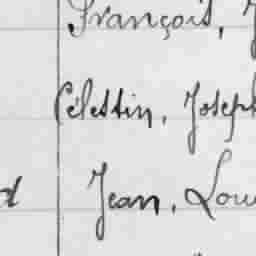 François,
Célestin, Joseph
Jean, Lou